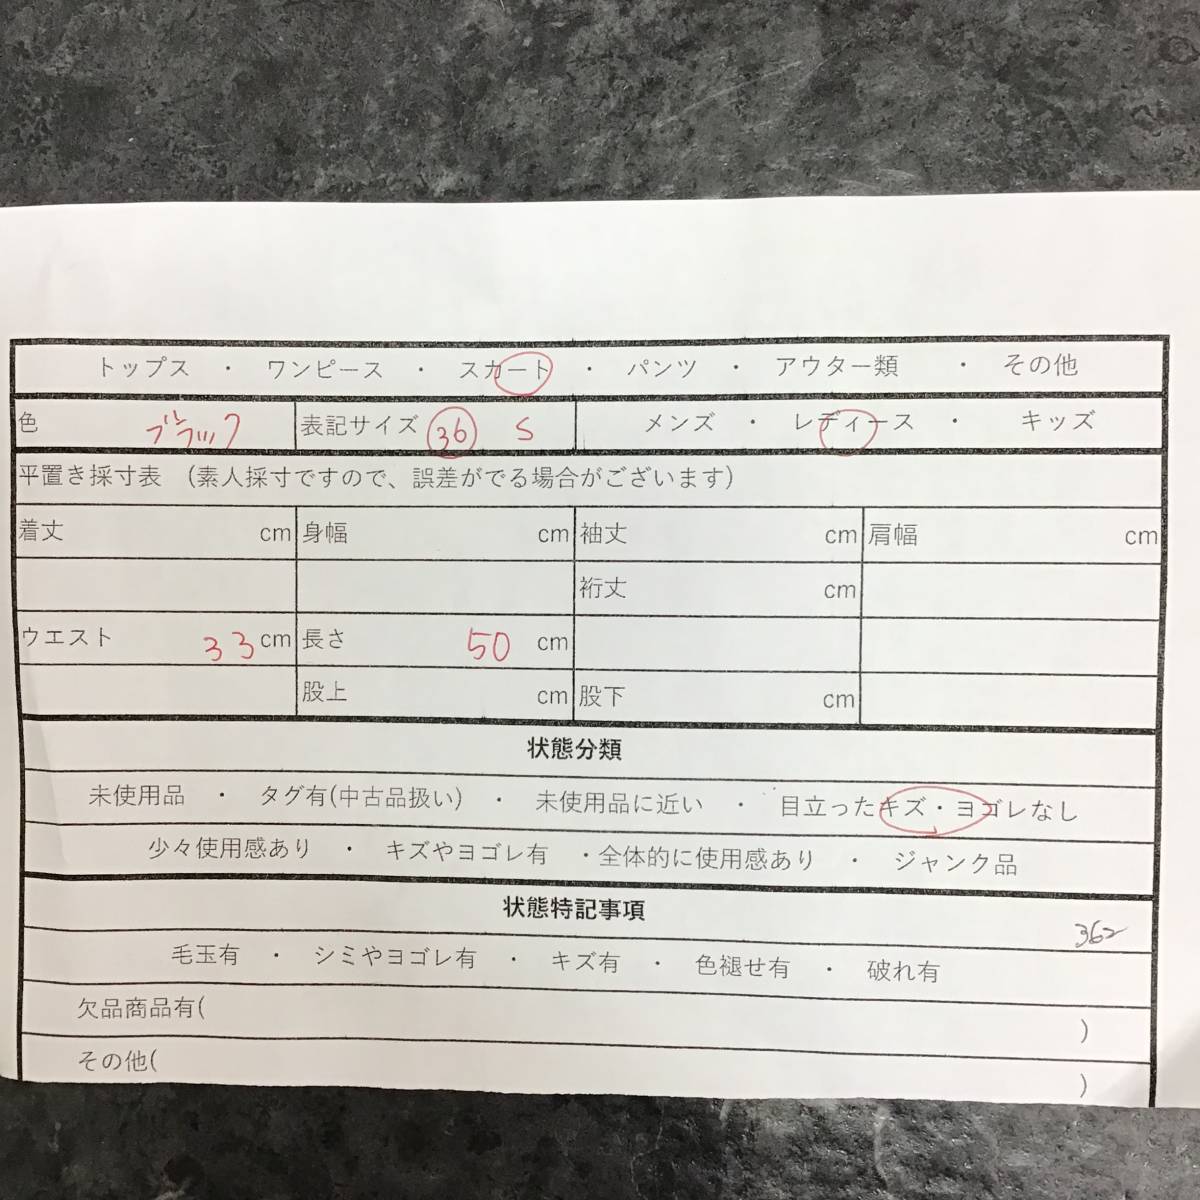 トップス ・ ワンピース ・ スカート ・ パンツ ・ アウター類 ・ その他
色 ブラック 表記サイズ 36 S メンズ ・ レディース ・ キッズ
平置き採寸表 （素人採寸ですので、誤差がでる場合がございます）
着丈 cm 身幅 cm 袖丈 cm 肩幅 cm
裄丈 cm
ウエスト 33 cm 長さ 50 cm
股上 cm 股下 cm
状態分類
未使用品 ・ タグ有(中古品扱い) ・ 未使用品に近い ・ 目立ったキズ・ヨゴレなし
少々使用感あり ・ キズやヨゴレ有 ・全体的に使用感あり ・ ジャンク品
状態特記事項
362
毛玉有 ・ シミやヨゴレ有 ・ キズ有 ・ 色褪せ有 ・ 破れ有
欠品商品有( )
その他( )